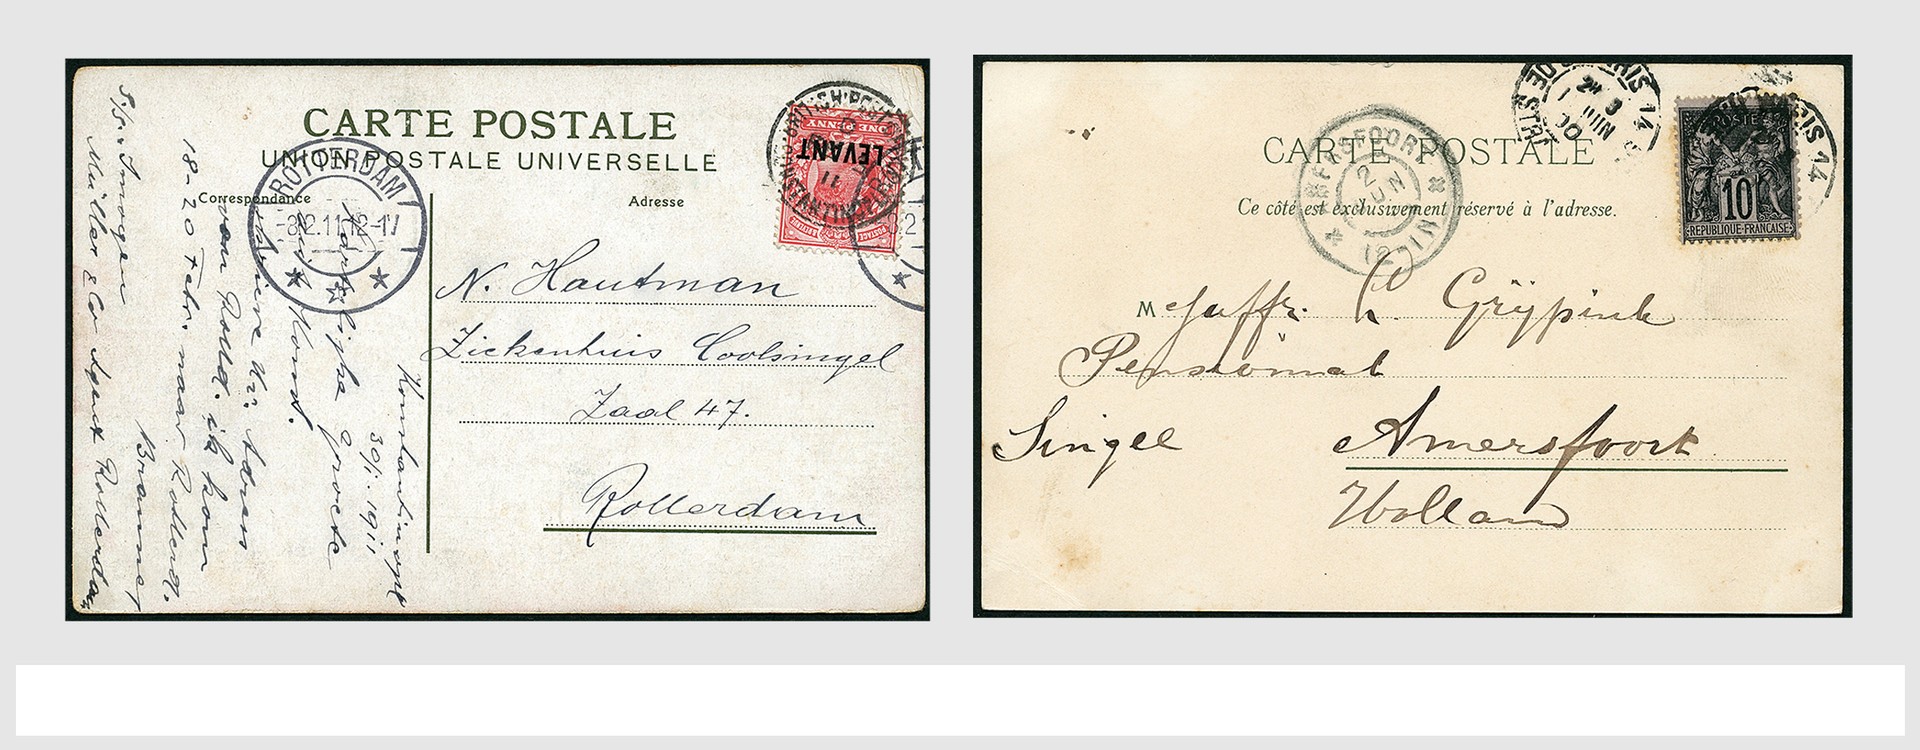 CARTE POSTALE
UNION POSTALE UNIVERSELLE
Correspondance
Adresse
ROTTERDAM
-8.2.11.12-1V
ONE PENNY
LEVANT
POSTAGE
N. Hautman
Ziekenhuis Coolsingel
Zaal 47.
Rotterdam
Konstantinopel
30/1. 1911
Hartelijke groete
uit Konst.
van Rotterd. ik kom
18-20 Febr. naar Rotterd.
Brammer
S/S. Imogen
Müller & Co Agent Rotterdam
CARTE POSTALE
Ce côté est exclusivement réservé à l'adresse.
AMERSFOORT
2 JUN
12-1N
PARIS 14
1 JUIN
00
10
POSTES
REPUBLIQUE FRANCAISE
M ejuffr. C. Grijpink
Pensionnat
Singel Amersfoort
Holland